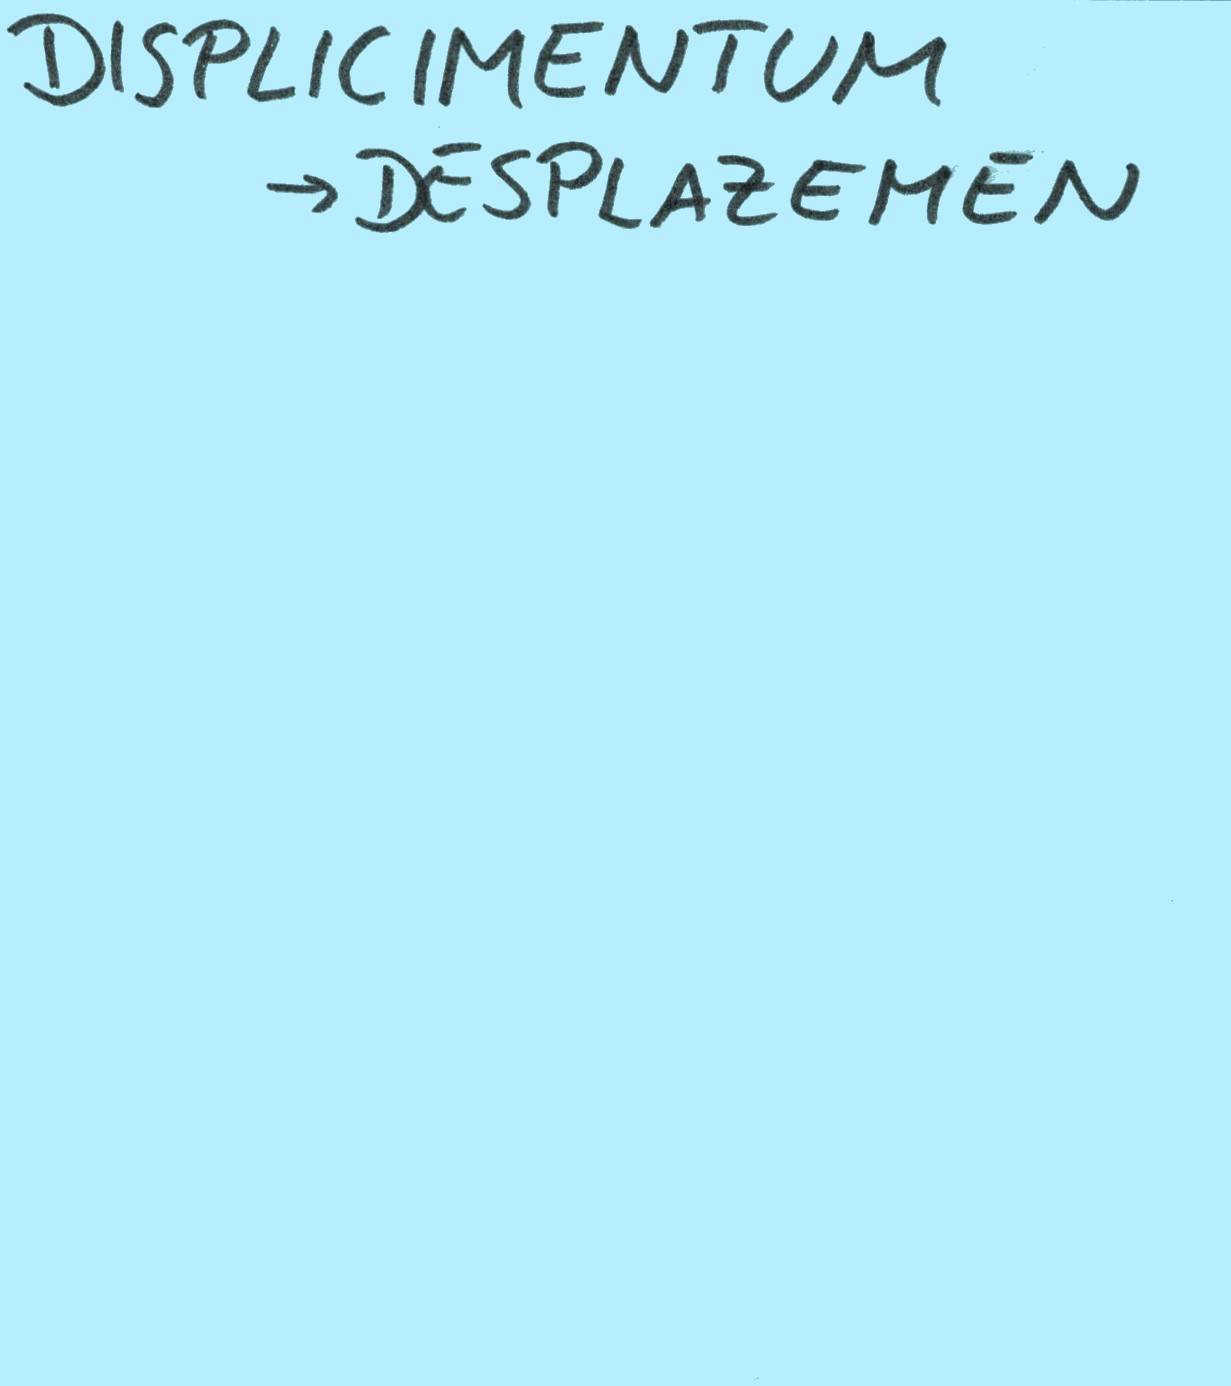 DISPLICIMENTUM
→ DESPLAZEMEN